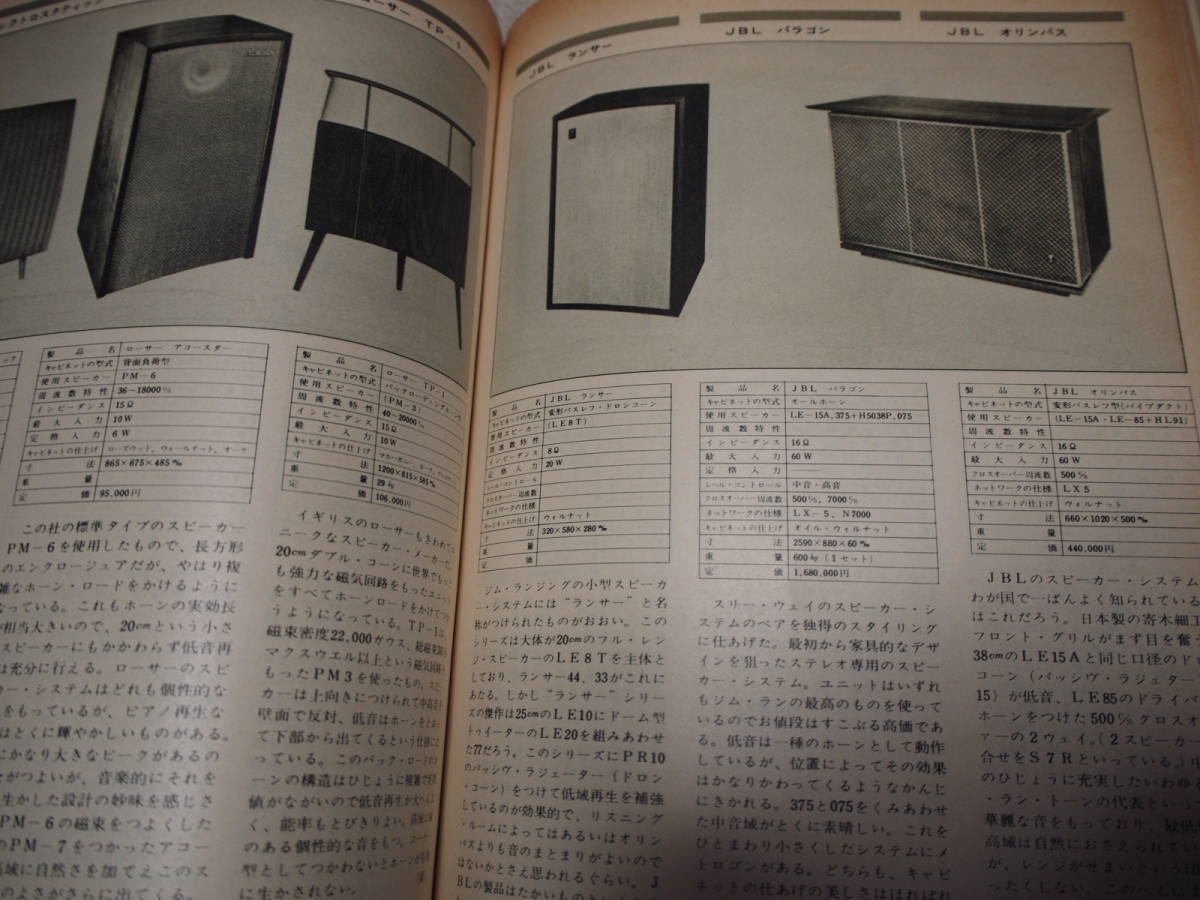 クトロスタティック
ーサー TP-1
JBL ランサー
JBL パラゴン
JBL オリンパス
製品名 ローサー アコースター
キャビネットの型式 背面負荷型
使用スピーカー PM-6
周波数特性 36~18000%
インピーダンス 15Ω
最大入力 10W
定格入力 6W
キャビネットの仕上げ ローズウッド、ウォールナット、オーク
寸法 865×675×485‰
重量
定価 95,000円
この社の標準タイプのスピーカー
PM-6を使用したもので、長方形
のエンクロージュアだが、やはり複
雑なホーン・ロードをかけるように
なっている。これもホーンの実効長
が相当大きいので、20cmという小さ
スピーカーにもかかわらず低音再
は充分に行える。ローサーのスピ
カー・システムはどれも個性的な
をもっているが、ピアノ再生な
はとくに輝やかしいものがある。
にかなり大きなピークがあるの
がつよいが、音楽的にそれを
生かした設計の妙味を感じさ
PM-6の磁束をつよくした
のPM-7をつかったアコー
高域に自然さを加てえこのス
のよさがさらに出てくる。
製品名 ローサー TP-1
キャビネットの型式
使用スピーカー (PM-3)
周波数特性 40~20000%
インピーダンス 15Ω
最大入力 10W
定格入力
キャビネットの仕上げ
寸法 1200×815×585‰
重量 29kg
定価 106,000円
イギリスのローサーもきわめてユ
ニークなスピーカー・メーカーだ。
20cmダブル・コーンに世界でもっと
も強力な磁気回路をもったユニット
をすべてホーンロードをかけてつか
うようになっている。TP-1は、
磁束密度22,000ガウス、総磁束
マクスウエル以上という磁気回路を
もったPM3を使ったもの。スピー
カーは上向きにつけられて中高音は
壁面で反対、低音はホーンをとおっ
て下部から出てくるという仕掛にな
っている。このバック・ロードのホ
ーンの構造はひじょうに複雑で実効
値がながいので低音再生が大へんよ
く、能率もとびきりよい。高域に
のある個性的な音をもつ。コーナー
型としてつかわないとホーンが
に生かされない。
製品名 JBL ランサー
キャビネットの型式 変形バスレフ・ドロンコーン
使用スピーカー (LE8T)
周波数特性
インピーダンス 8Ω
定格入力 20W
レベル・コントロール
クロスオーバー周波数
ネットワークの仕様
キャビネットの仕上げ ウォルナット
寸法 320×580×280‰
重量
定価
ジム・ランジングの小型スピーカ
ー・システムには“ランサー”と名
称がつけられたものがおおい。この
シリーズは大体が20cmのフル・レン
ジ・スピーカーのLE8Tを主体と
しており、ランサー44、33がこれに
あたる。しかし“ランサー”シリー
ズの傑作は25cmのLE10にドーム型
トゥイーターのLE20を組みあわせ
た77だろう。このシリーズにPR10
のパッシヴ・ラジェーター(ドロン
・コーン)をつけて低域再生を補強
しているのが効果的で、リスニング
・ルームによってはあるいはオリン
パスよりも音のまとまりがよいので
はないかとさえ思われるぐらい。J
BLの製品はたかいものと
製品名 JBL パラゴン
キャビネットの型式 オールホーン
使用スピーカー LE-15A,375+H5038P,075
周波数特性
インピーダンス 16Ω
最大入力 60W
定格入力
レベル・コントロール 中音・高音
クロスオーバー周波数 500%,7000%
ネットワークの仕様 LX-5、N7000
キャビネットの仕上げ オイル・ウォルナット
寸法 2590×880×60‰
重量 600kg(1セット)
定価 1,680,000円
スリー・ウェイのスピーカー・シ
ステムのペアを独得のスタイリング
に仕あげた。最初から家具的なデザ
インを狙ったステレオ専用のスピー
カー・システム。ユニットはいずれ
もジム・ランの最高のものを使って
いるのでお値段はすこぶる高価であ
る。低音は一種のホーンとして動作
しているが、位置によってその効果
はかなりかわってくるようなかんじ
にきかれる。375と075をくみあわせ
た中音域がとくに素晴しい。これを
ひとまわり小さくしたシステムにメ
トロゴンがある。どちらも、キャビ
ネットの仕あげの美しさはほれぼれ
製品名 JBL オリンパス
キャビネットの型式 変形バスレフ型(パイプダクト)
使用スピーカー (LE-15A・LE-85+HL91)
周波数特性
インピーダンス 16Ω
最大入力 60W
クロスオーバー周波数 500%
ネットワークの仕様 LX5
キャビネットの仕上げ ウォルナット
寸法 660×1020×500‰
重量
定価 440,000円
JBLのスピーカー・システム
わが国で一ばんよく知られている
はこれだろう。日本製の寄木細工
フロント・グリルがまず目を奪
38cmのLE15Aと同じ口径のド
コーン(パッシヴ・ラジェター
15)が低音、LE85のドライバ
ホーンをつけた500%クロスオ
ァーの2ウェイ。(2スピーカー
合せをS7Rといっている。)
のひじょうに充実したいわゆ
・ラン・トーンの代表といっ
華麗な音をもっており、最低
高域は自然におさえられてい
が、レンジがせまいという
ったくしない。このへんに